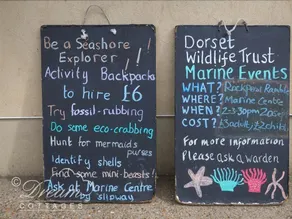 Be a Seashore
Explorer!!
Activity Backpacks
to hire £6
Try fossil-rubbing
Do some eco-crabbing
Hunt for mermaids
purses
Identify shells
Find some mini-beasts!
Ask at Marine Centre
slipway
Dorset
Wildlife Trust
Marine Events
WHAT? Rockpool Ramble
WHERE? Marine Centre
WHEN?
COST? £3 adult
For more information
Please ask a warden
© Dream
COTTAGES